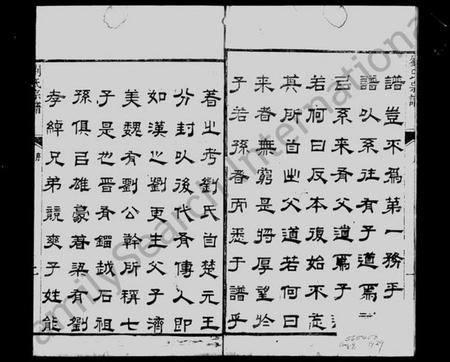 譜豈不爲第一務乎
譜以系往有子道焉
己系来有父道焉子
若何曰反本復始不忘
其所自出父道若何曰
来者無窮是将厚望於
子若孫者而悉于譜乎
著之考劉氏自楚元王
分封以後代有傳人即
如漢之劉更生父子濟
美魏有劉公幹所稱七
子是也晋有錙越石祖
孫俱㠯雄豪着梁有劉
孝綽兄弟競爽子姓能
劉氏宗譜
劉氏宗譜
FamilySearch International